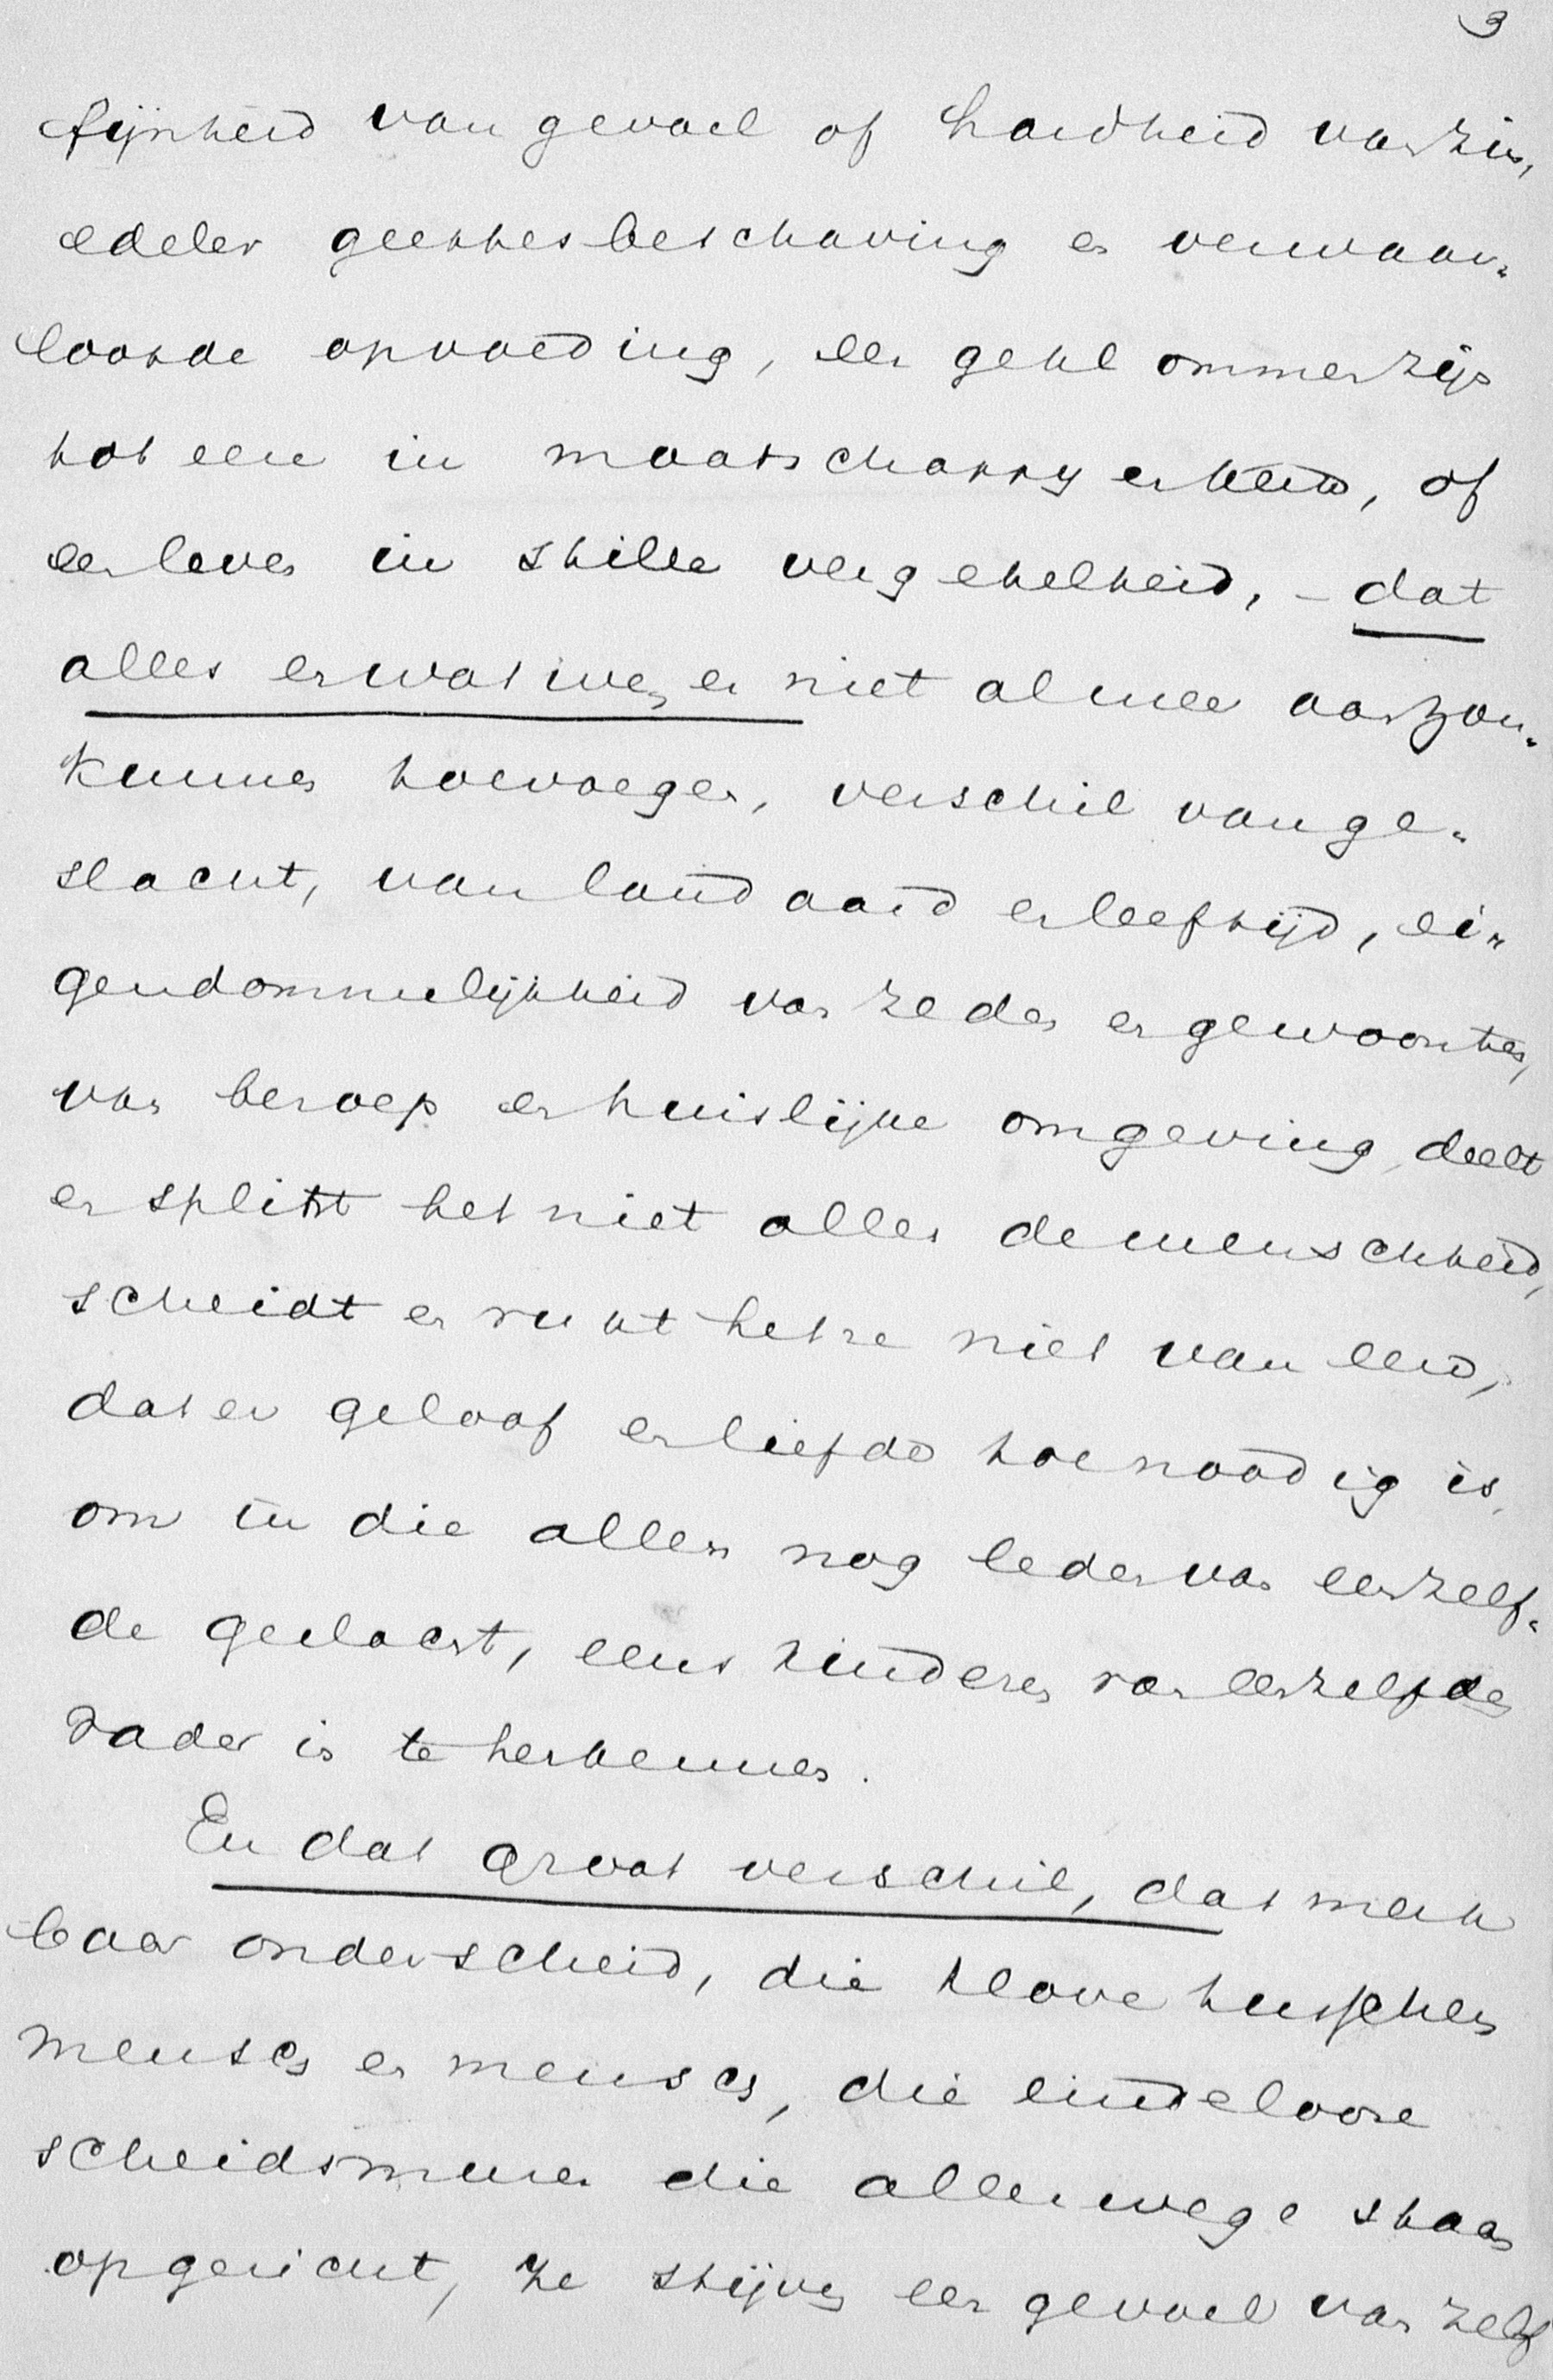 3
fijnheid van gevoel of hardheid van zin,
edeler geestesbeschaving en verwaar-
loosde opvoeding, een geklommen zijn
tot eere in maatschappij en kerk, of
een leven in stille vergetelheid, - dat
alles en wat we er niet al mee aan zou-
kunnen toevoegen, verschil van ge-
slacht, van landaard en leeftijd, ei-
gendommelijkheid van zeden en gewoontes,
van beroep en huislijke omgeving, deelt
en splitst het niet alles de menschheid,
scheidt en rukt het ze niet van eend,
dat er geloof en liefde toe noodig is,
om in die allen nog leden van eenzelf-
de geslacht, eens kinderen van eenzelfden
Vader is te herkennen.
En dat groot verschil, dat merk
baar onderscheid, die klove tusschen
mensch en mensch, die eindeloore
scheidsmuren die allerwege staan
opgericht, ze stijven een gevoel van zelf